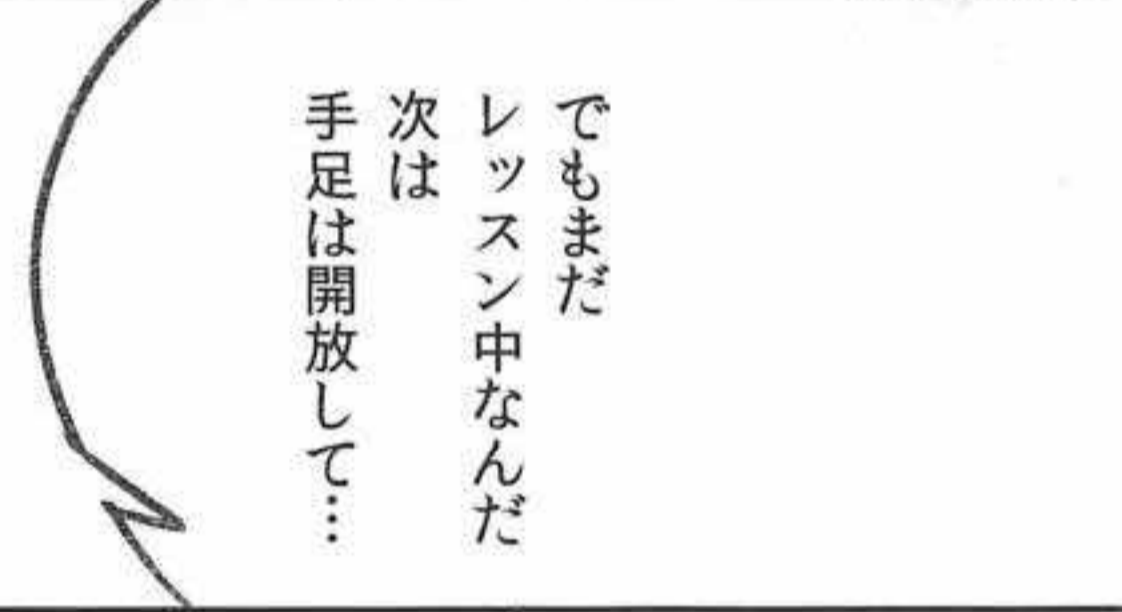 でもまだ
レッスン中なんだ
次は
手足は開放して…